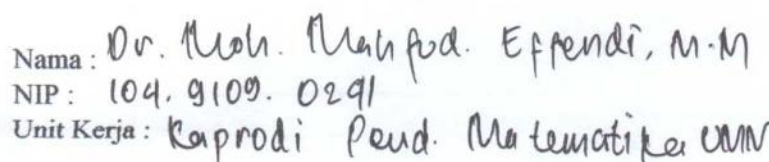 Nama : Dr. Moh. Mahfud. Effendi, M.M
NIP : 104. 9109. 0291
Unit Kerja : Kaprodi Pend. Matematika UMM